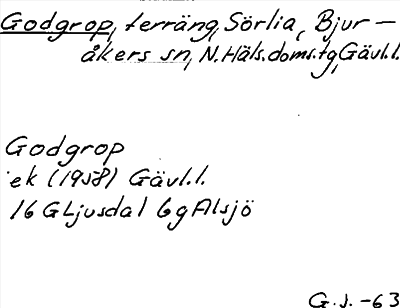 Godgrop, terräng, Sörlia, Bjur-
åkers sn, N. Häls. doms. tg, Gävl. l.
Godgrop
ek (1958) Gävl. l.
16 G Ljusdal 6 g Alsjö
G. J. -63